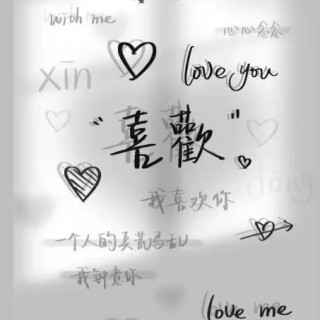 with me
心心念念
love you
xīn
"喜歡"
我喜欢你
一个人的兵荒马乱
我钟意你
love me